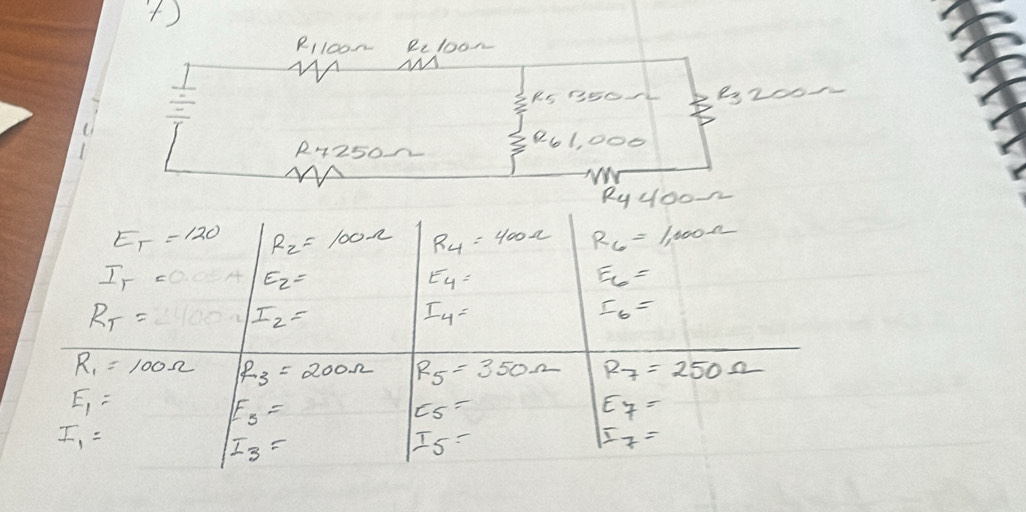 7)
R1 100Ω R2 100Ω
R5 350Ω R3 200Ω
R6 1,000
R7 250Ω
R4 400Ω
E_T = 120 R₂ = 100Ω R₄ = 400Ω R₆ = 1,000Ω
I_T = 0.05A E₂ = E₄ = E₆ =
R_T = 2400Ω I₂ = I₄ = I₆ =
R₁ = 100Ω R₃ = 200Ω R₅ = 350Ω R₇ = 250Ω
E₁ = E₃ = E₅ = E₇ =
I₁ = I₃ = I₅ = I₇ =